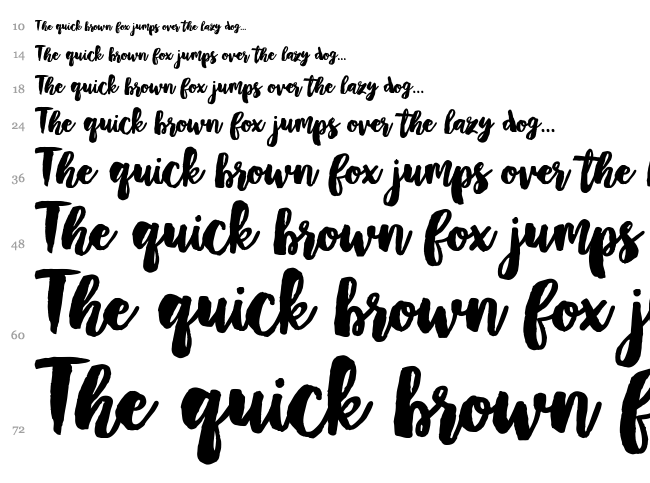 10 The quick brown fox jumps over the lazy dog...
14 The quick brown fox jumps over the lazy dog...
18 The quick brown fox jumps over the lazy dog...
24 The quick brown fox jumps over the lazy dog...
36 The quick brown fox jumps over the
48 The quick brown fox jumps
60 The quick brown fox j
72 The quick brown f